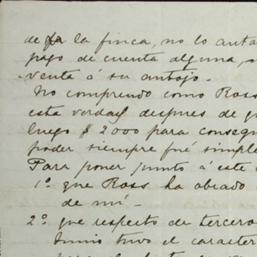 de la finca, no lo auto
pago de cuenta alguna, o
venta á su antojo.
No comprendo como Ross
esta verdad despues de q
luego $2000 para consegu
poder siempre fué simple
Para poner punto á este
1º que Ross ha abusado
de mi.
2º que respecto de tercero
tuvo el caracter